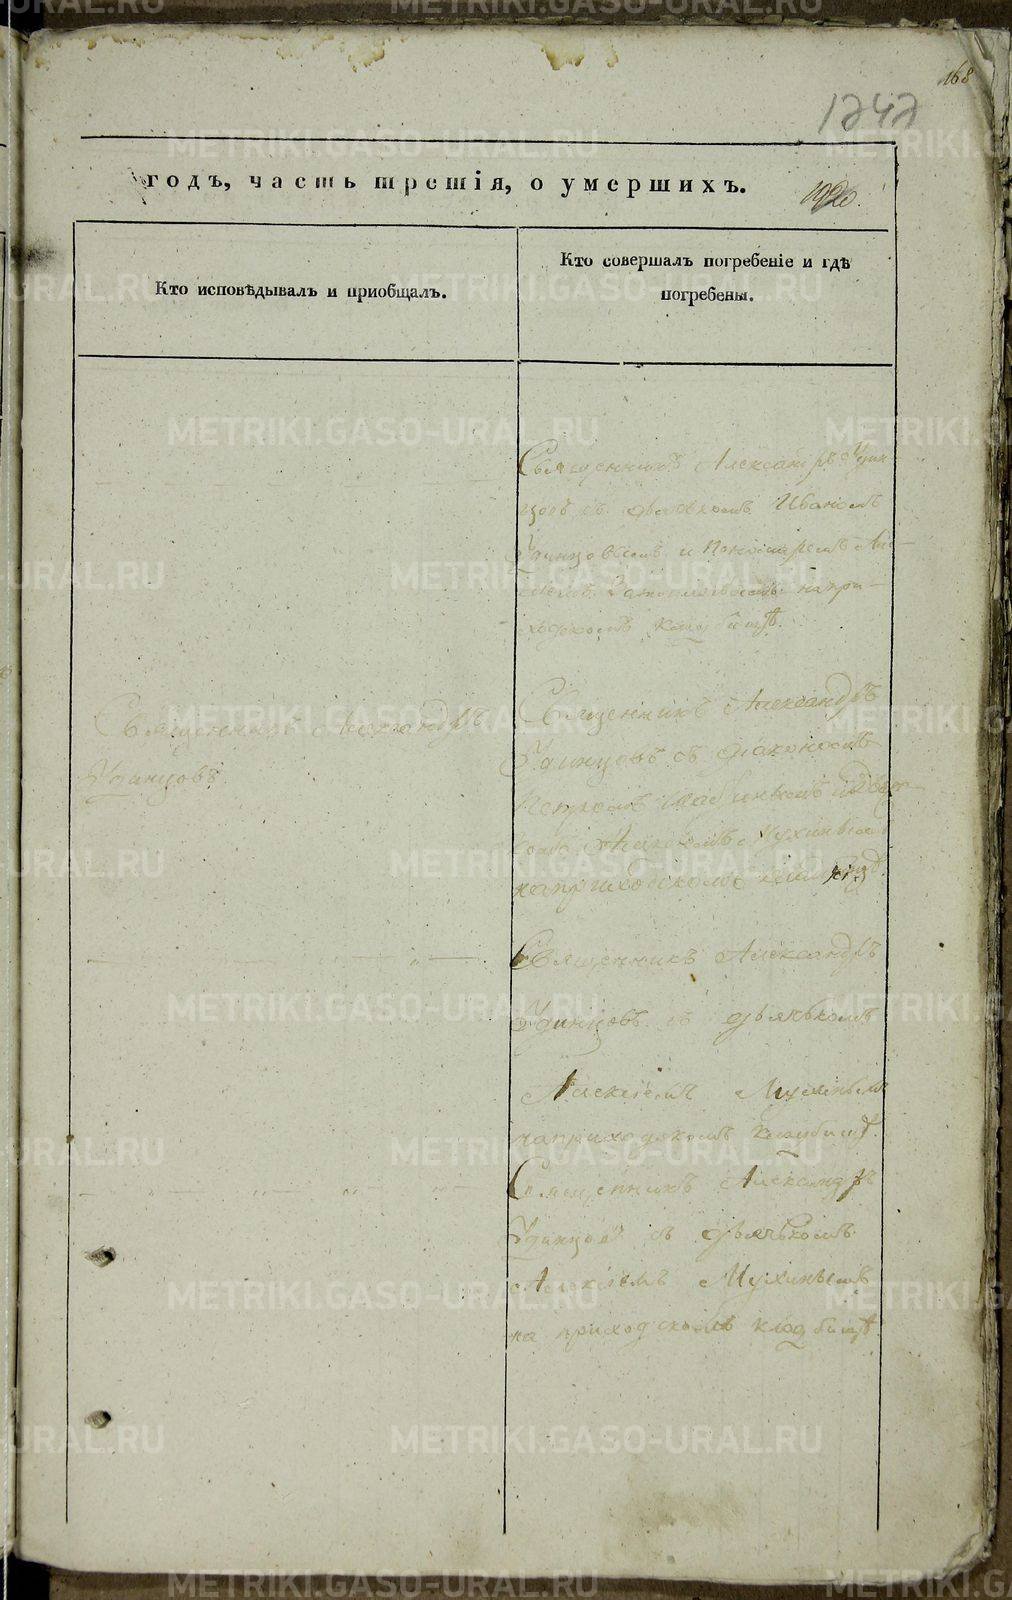 168
1242
годъ, часть третія, о умершихъ.
Кто исповѣдывалъ и приобщалъ.
Кто совершалъ погребеніе и гдѣ
погребены.
Священникъ Александръ Удин-
цовъ съ Иваномъ
Удинцовымъ и Пономаремъ
на при-
ходскомъ кладбищѣ
Священникъ Александръ
Удинцовъ
Священникъ Александръ
Удинцовъ съ Діакономъ
Петромъ
Мухинымъ
на приходскомъ
Священникъ Александръ
Удинцовъ съ дьячькомъ
Алексіемъ Мухинымъ
на приходскомъ кладбищѣ
Священникъ Александръ
Удинцовъ съ дьячькомъ
Алексіемъ Мухинымъ
на приходскомъ кладбищѣ
METRIKI.GASO-URAL.RU